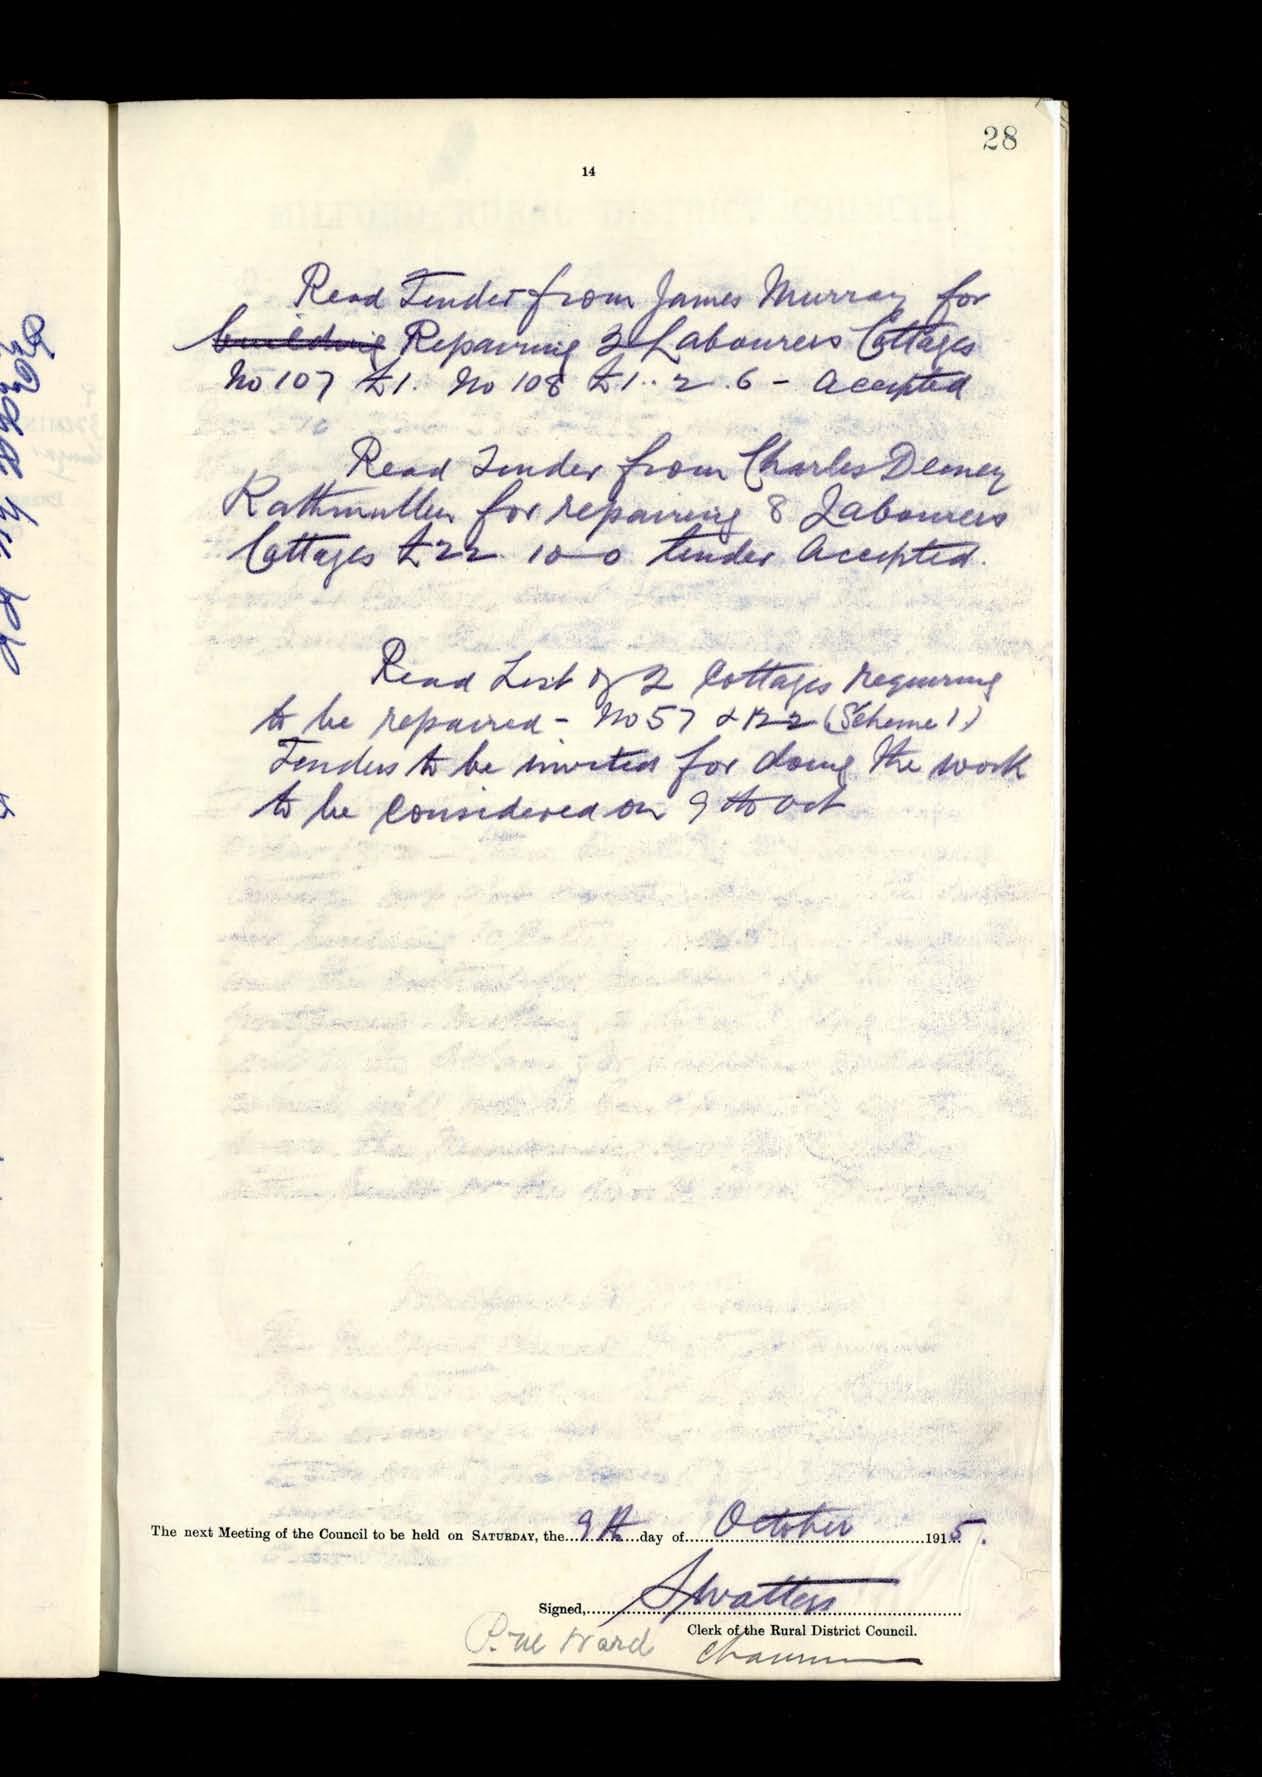 28
14
Read Tender from James Murray for
building Repairing 2 Labourers Cottages
No 107 £1. No 108 £1..2.6 - accepted
Read Tender from Charles Deeney
Rathmullen for repairing 8 Labourers
Cottages £22 10-0 tender accepted.
Read List of 2 Cottages requiring
to be repaired - No 57 & 122 (Scheme 1)
Tenders to be invited for doing the work
to be considered on 9th Oct
The next Meeting of the Council to be held on SATURDAY, the 9th day of October 1915.
Signed, S Watters
Clerk of the Rural District Council.
P. M Ward Chairman